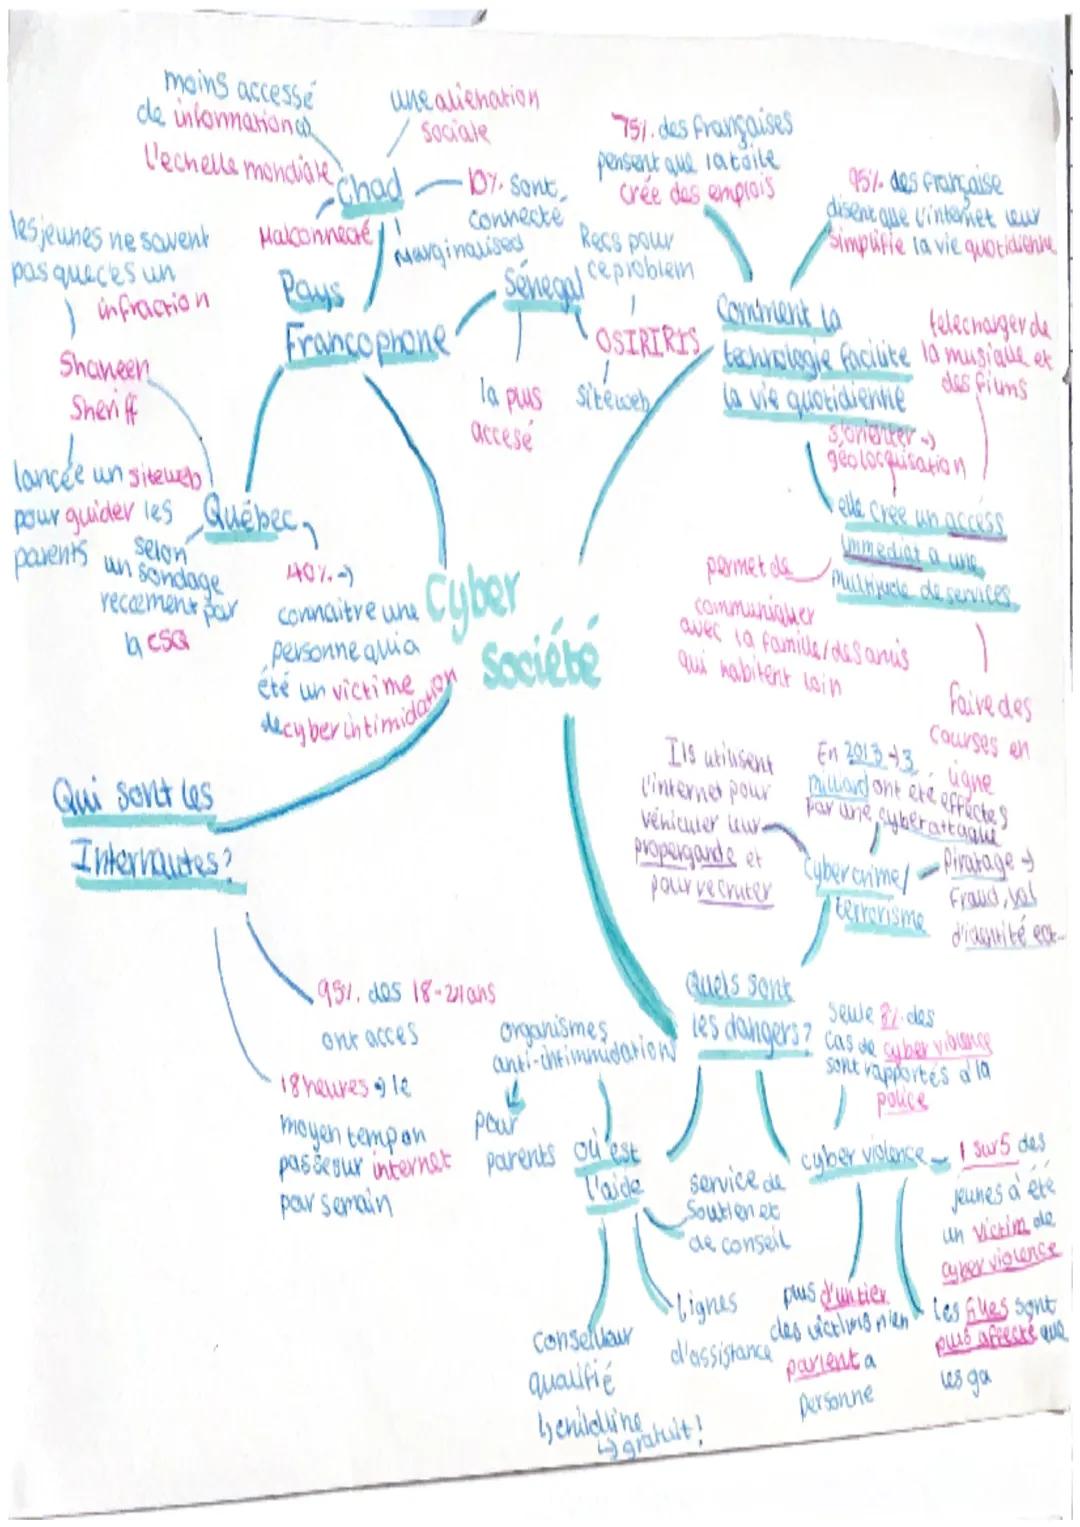 moins accessé
de information @
l'echelle mondiale
une alienation
sociale
Chad
10% sont
connecté
Malconnecté
Marginalised
Pays
Francophone
Sénegal
Recs pour
ce problem
OSIRIRIS
siteweb
la plus
accesé
les jeunes ne savent
pas que c'es un
infraction
Shaheen
Sheriff
lancée un siteweb
pour guider les
parents
Québec
selon
un sondage
recement par
la CSQ
40% →
connaitre une
personne qui a
été un victime
de cyber intimidation
Cyber
société
75% des françaises
pensent que la toile
crée des emplois
95% des française
disent que l'internet leur
simplifie la vie quotidienne
Comment la
technologie facilite
la vie quotidienne
telecharger de
la musique et
des films
s'orienter →
géolocalisation
elle crée un access
immediat a une
multitude de services
permet de
communiquer
avec la famille/des amis
qui habitent loin
faire des
courses en
ligne
Qui sont les
Internautes?
95% des 18-24 ans
ont acces
18 heures → le
moyen temp on
passe sur internet
par semain
Ils utilisent
l'internet pour
véhiculer leur
propergande et
pour recruter
En 2013 → 3
milliard ont été effectes
par une cyberattaque
Cybercrime/
terrorisme
Piratage →
Fraud, vol
d'identité ect...
Quels sont
les dangers?
Seule 8% des
cas de cyber violence
sont rapportés à la
police
cyber violence
1 sur 5 des
jeunes a été
un victim de
cyber violence
les filles sont
plus affecté que
les ga
plus d'un tier
des victims n'en
parlent a
personne
organismes
anti-intimmidation
pour
parents
où est
l'aide
service de
Soutien et
de conseil
lignes
d'assistance
Conseillaur
qualifié
↳ childline
↳ gratuit!